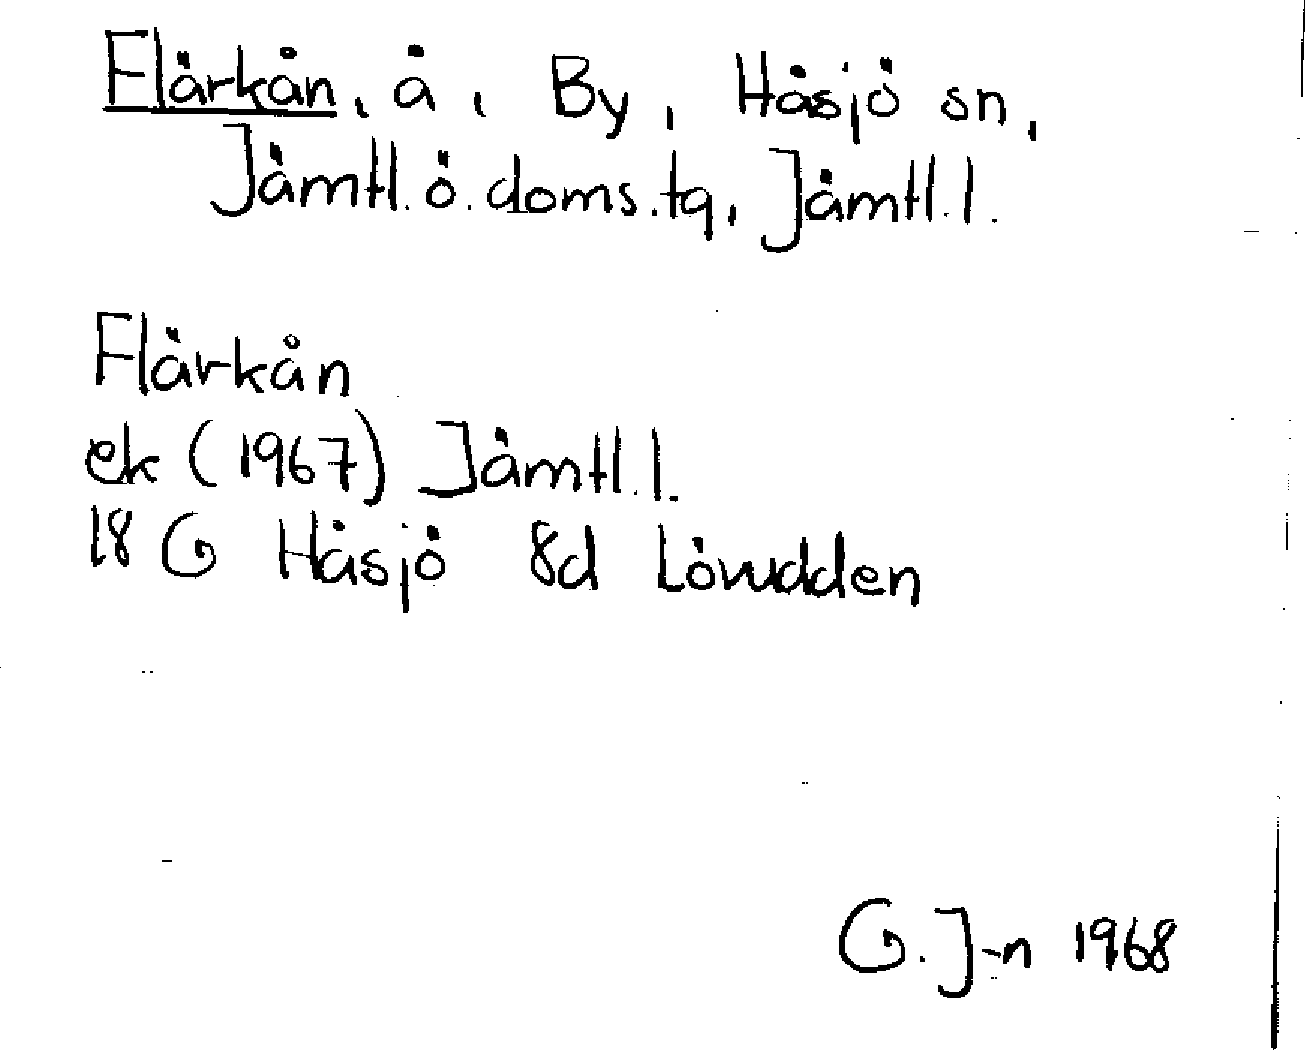 Flärkån, å, By, Håsjö sn,
Jämtl. ö. doms. tg, Jämtl. l.
Flärkån
ek (1967) Jämtl. l.
18 G Håsjö 8d Lövudden
G. J-n 1968